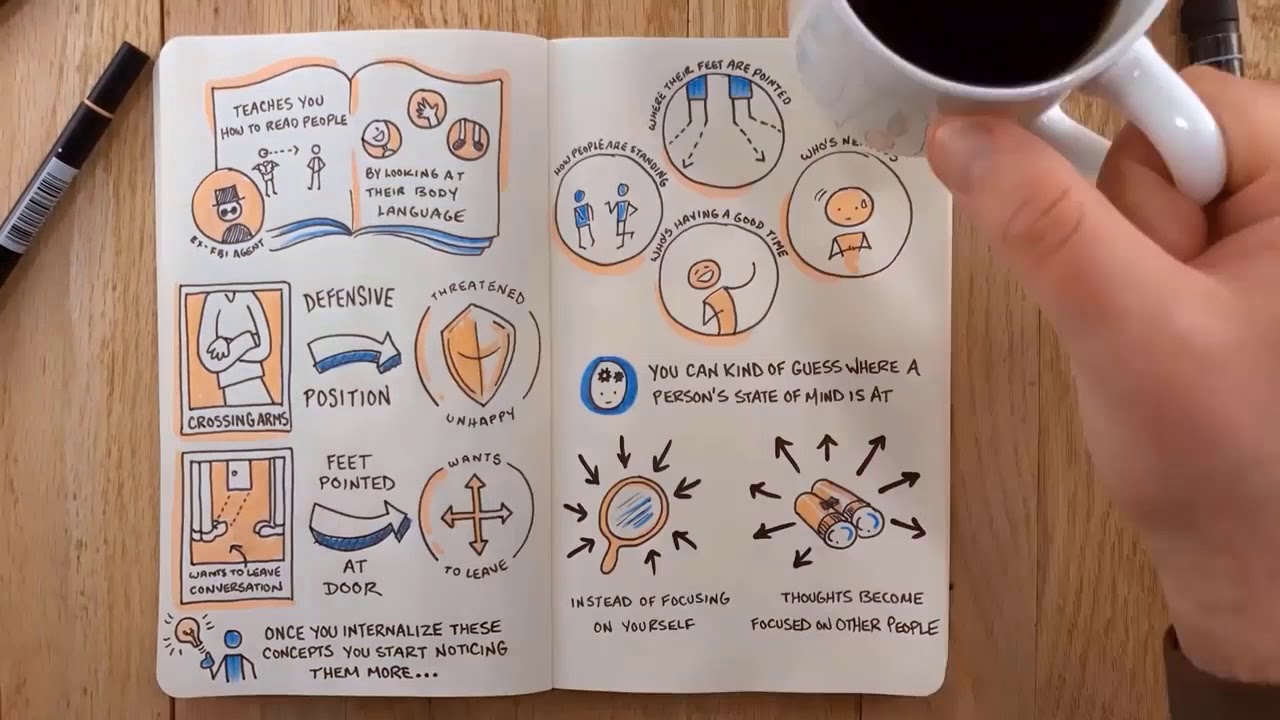 TEACHES YOU
HOW TO READ PEOPLE
BY LOOKING AT
THEIR BODY
LANGUAGE
EX-FBI AGENT
DEFENSIVE
POSITION
CROSSING ARMS
THREATENED
UNHAPPY
FEET
POINTED
AT
DOOR
WANTS TO LEAVE
CONVERSATION
WANTS
TO LEAVE
ONCE YOU INTERNALIZE THESE
CONCEPTS YOU START NOTICING
THEM MORE...
WHERE THEIR FEET ARE POINTED
HOW PEOPLE ARE STANDING
WHO'S
WHO'S HAVING A GOOD TIME
YOU CAN KIND OF GUESS WHERE A
PERSON'S STATE OF MIND IS AT
INSTEAD OF FOCUSING
ON YOURSELF
THOUGHTS BECOME
FOCUSED ON OTHER PEOPLE